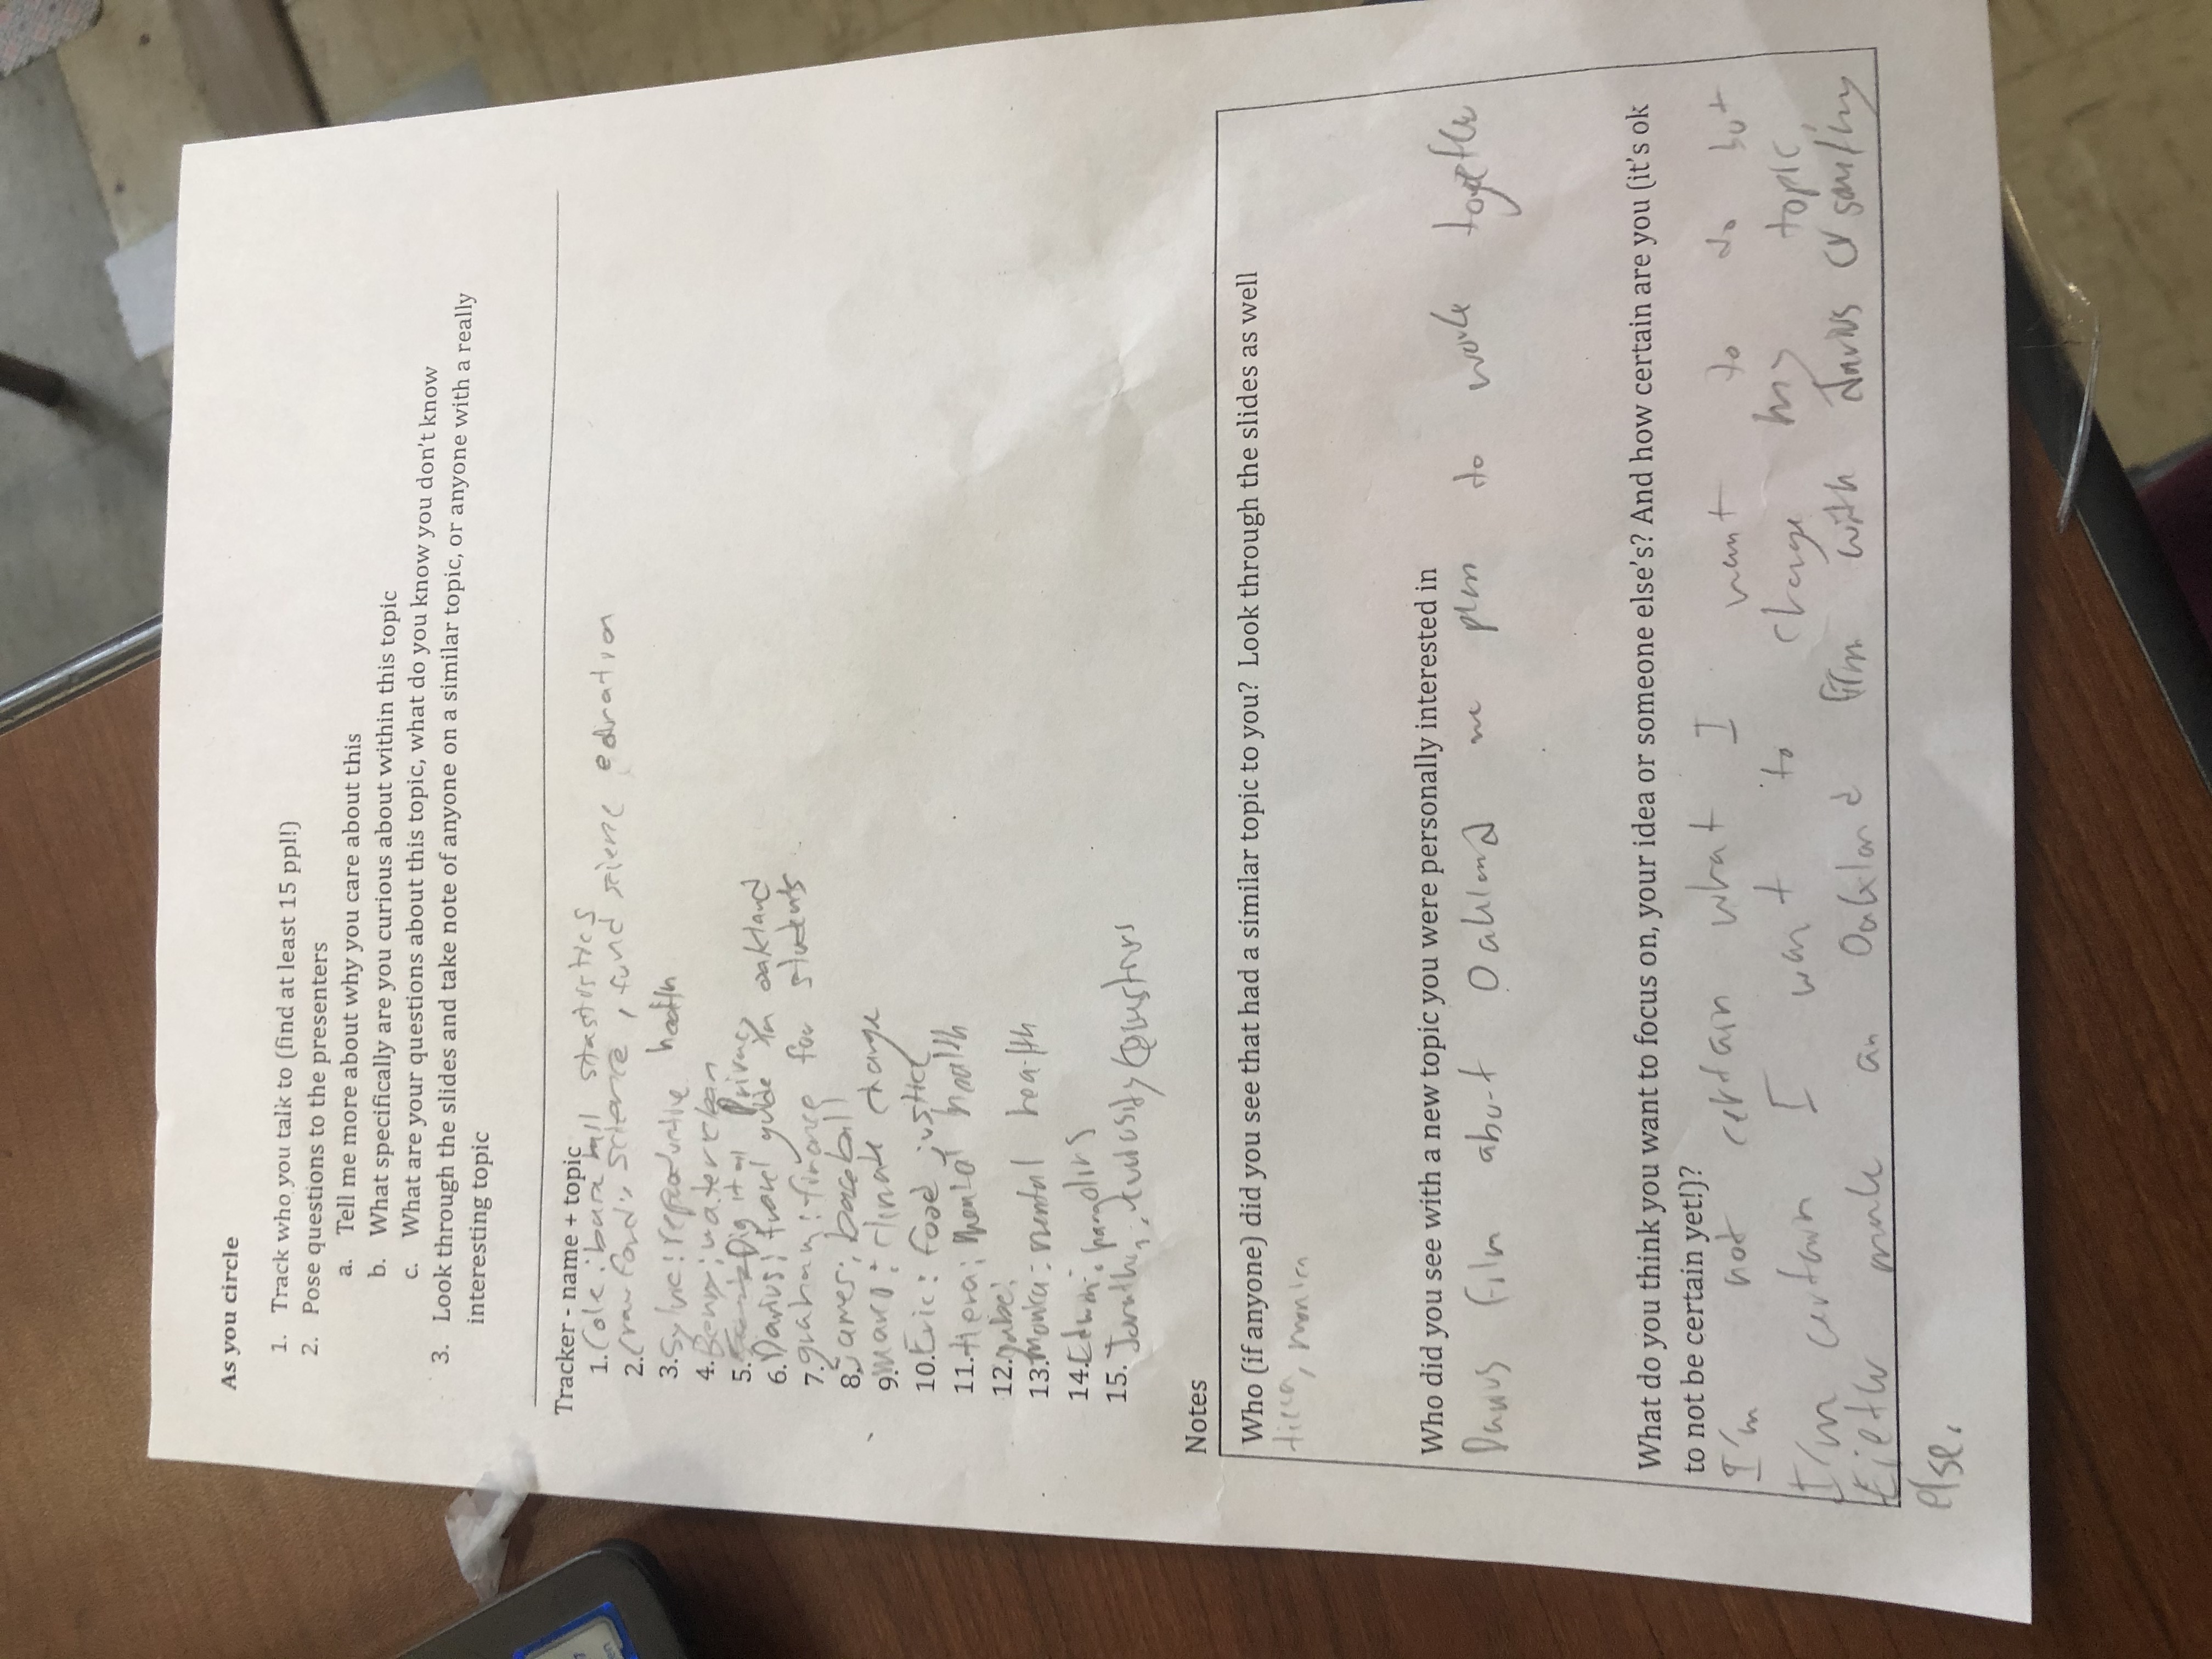 As you circle
1. Track who you talk to (find at least 15 ppl!)
2. Pose questions to the presenters
a. Tell me more about why you care about this
b. What specifically are you curious about within this topic
c. What are your questions about this topic, what do you know you don't know
3. Look through the slides and take note of anyone on a similar topic, or anyone with a really
interesting topic
Tracker - name + topic
1. Cole: stastistics
2. Crawford: science, fund science education
3. Sylvie: reproductive health
4. Benny: water clean
5. Digital Privacy
6. Darius: travel guide in oakland
7. graham: finance for students
8. James: baseball
9. Marco: climate change
10. Eric: food justice
11. tiera: mental health
12. gabe:
13. Monica: mental health
14. Edwin: pangolins
15. questions
Notes
Who (if anyone) did you see that had a similar topic to you? Look through the slides as well
tiera, monica
Who did you see with a new topic you were personally interested in
Darius film about Oakland we plan to work together
What do you think you want to focus on, your idea or someone else's? And how certain are you (it's ok
to not be certain yet!)?
I'm not certain what I want to do but
I'm certain I want to change my topic.
make an Oakland film with darius or
else.